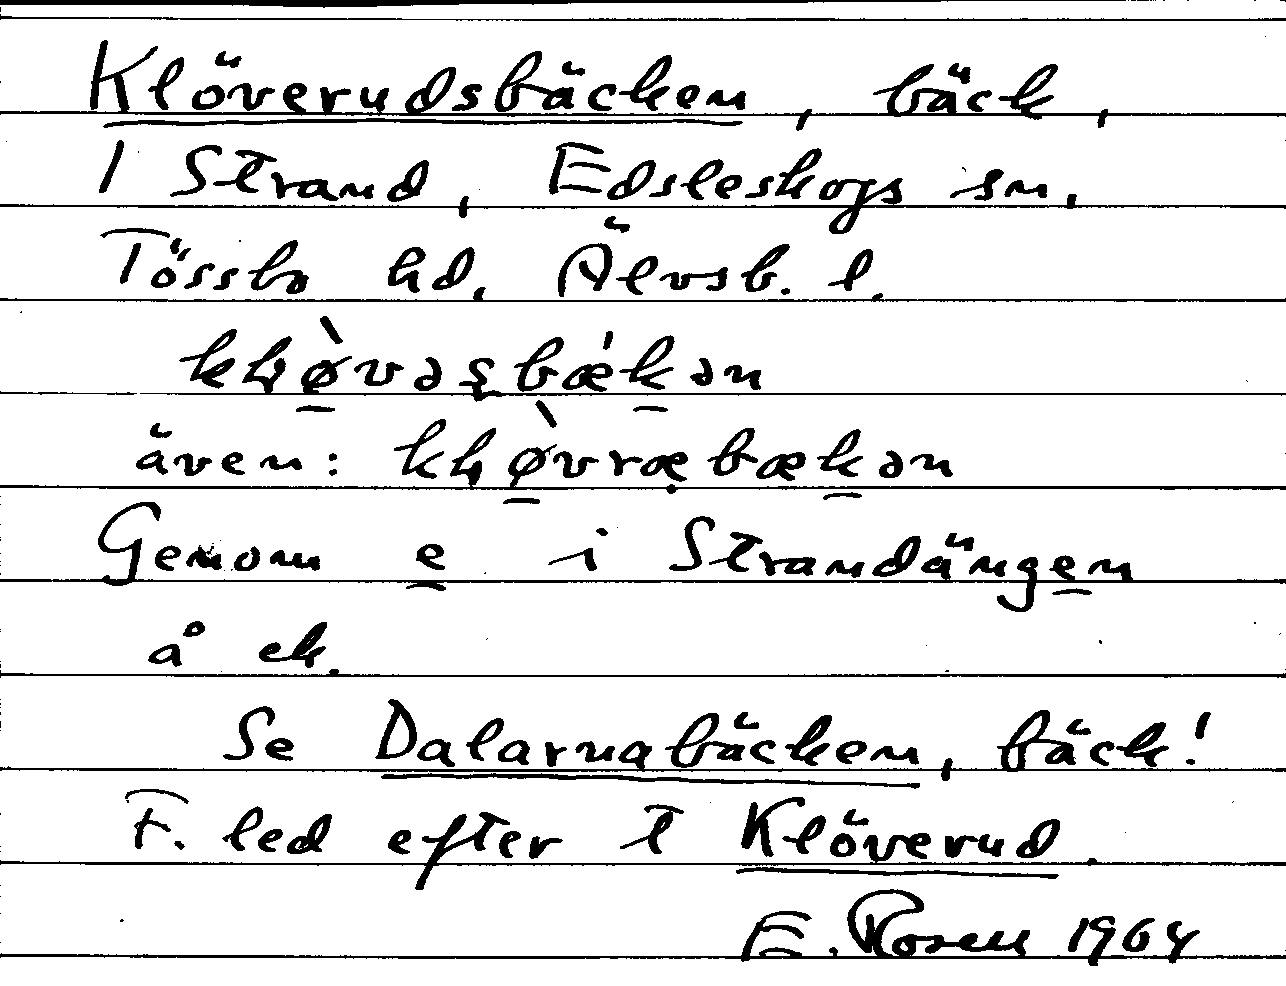 Klöverudsbäcken, bäck,
I Strand, Edsleskogs sn,
Tössbo hd, Älvsb. l.
även:
Genom e i Strandängen
å ek.
Se Dalarnabäcken, bäck!
F. led efter t Klöverud.
E. Rosell 1964